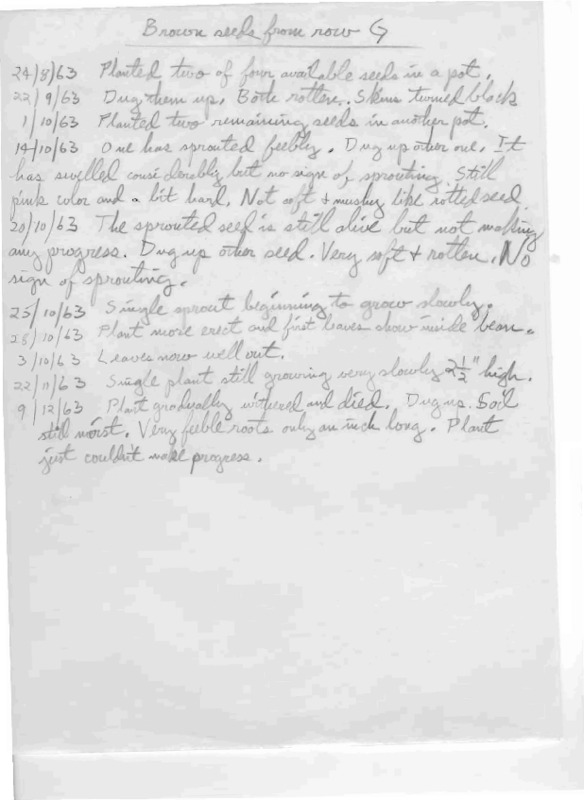 Brown seeds from row G
24/8/63 Planted two of four available seeds in a pot.
22/9/63 Dug them up. Both rotten. Skins turned black
1/10/63 Planted two remaining seeds in another pot.
14/10/63 One has sprouted feebly. Dug up other one. It
has swelled considerably but no sign of sprouting. Still
pink color and a bit hard. Not soft + mushy like rotted seed.
20/10/63 The sprouted seed is still alive but not making
any progress. Dug up other seed. Very soft + rotten. No
sign of sprouting.
25/10/63 Single sprout beginning to grow slowly.
28/10/63 Plant more erect and first leaves show inside bean.
3/10/63 Leaves now well out.
22/11/63 Single plant still growing very slowly 2 1/2" high.
9/12/63 Plant gradually withered and died. Dug up. Soil
still moist. Very feeble roots only an inch long. Plant
just couldn't make progress.